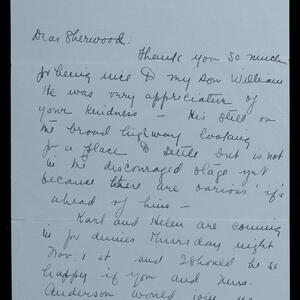 Dear Sherwood:
Thank you so much
for being nice to my son William
He was very appreciative of
your kindness — He's still on
the broad highway looking
for a place to settle but is not
in the discouraged stage yet
because there are various "if's
ahead of him —
Karl and Helen are coming
in for dinner Thursday night
Nov. 1st and I should be so
happy if you and Mrs.
Anderson would join us